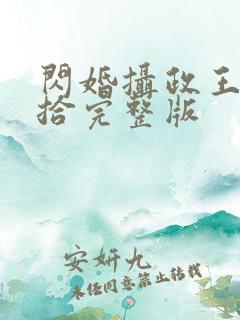 閃婚攝政王
拾完整版
安妍九
未经同意禁止转载